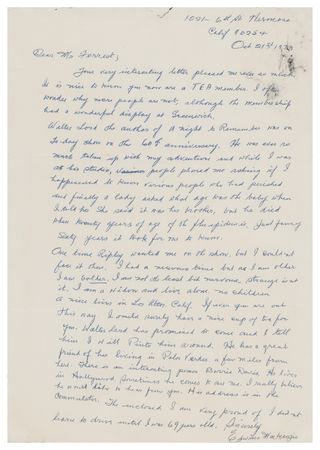 1021- 6th St Hermosa
Calif 90254
Oct 21st
Dear Mr Forrest,
Your very interesting letter pleased me so much
It is nice to know you now are a TEA member. I often
wonder why more people are not, although the membership
had a wonderful display at Greenwich.
Walter Lord the author of A Night to Remember was on
To-day show on the 60th anniversary. He was so
much taken up with my adventure and while I was
at his studio, people phoned me asking if I
happened to know various people who had perished
and finally a lady asked what age was the baby when
I told her She said it was her brother, but he died
when twenty years of age of the flu epidemic. Just fancy
Sixty years it took for me to know.
One time Ripley wanted me on his show, but I couldn't
face it then. I had a nervous time but as I am older
I am bolder. I am not the least bit nervous, strange isn't
it, I am a widow and live alone no children
A niece lives in Calif. If ever you are out
this way I would surely have a nice cup of tea for
you. Walter Lord has promised to come and I tell
him I will him around. He has a great
friend of his living in Palos Verdes a few miles from
here. There is an interesting person He lives
in Hollywood sometimes he comes to see me, I really believe
he would like to hear from you. His address is in the
Commutator. The enclosed I am very proud of I did not
learn to drive until I was 69 years old. Sincerely
Edwina MacKenzie